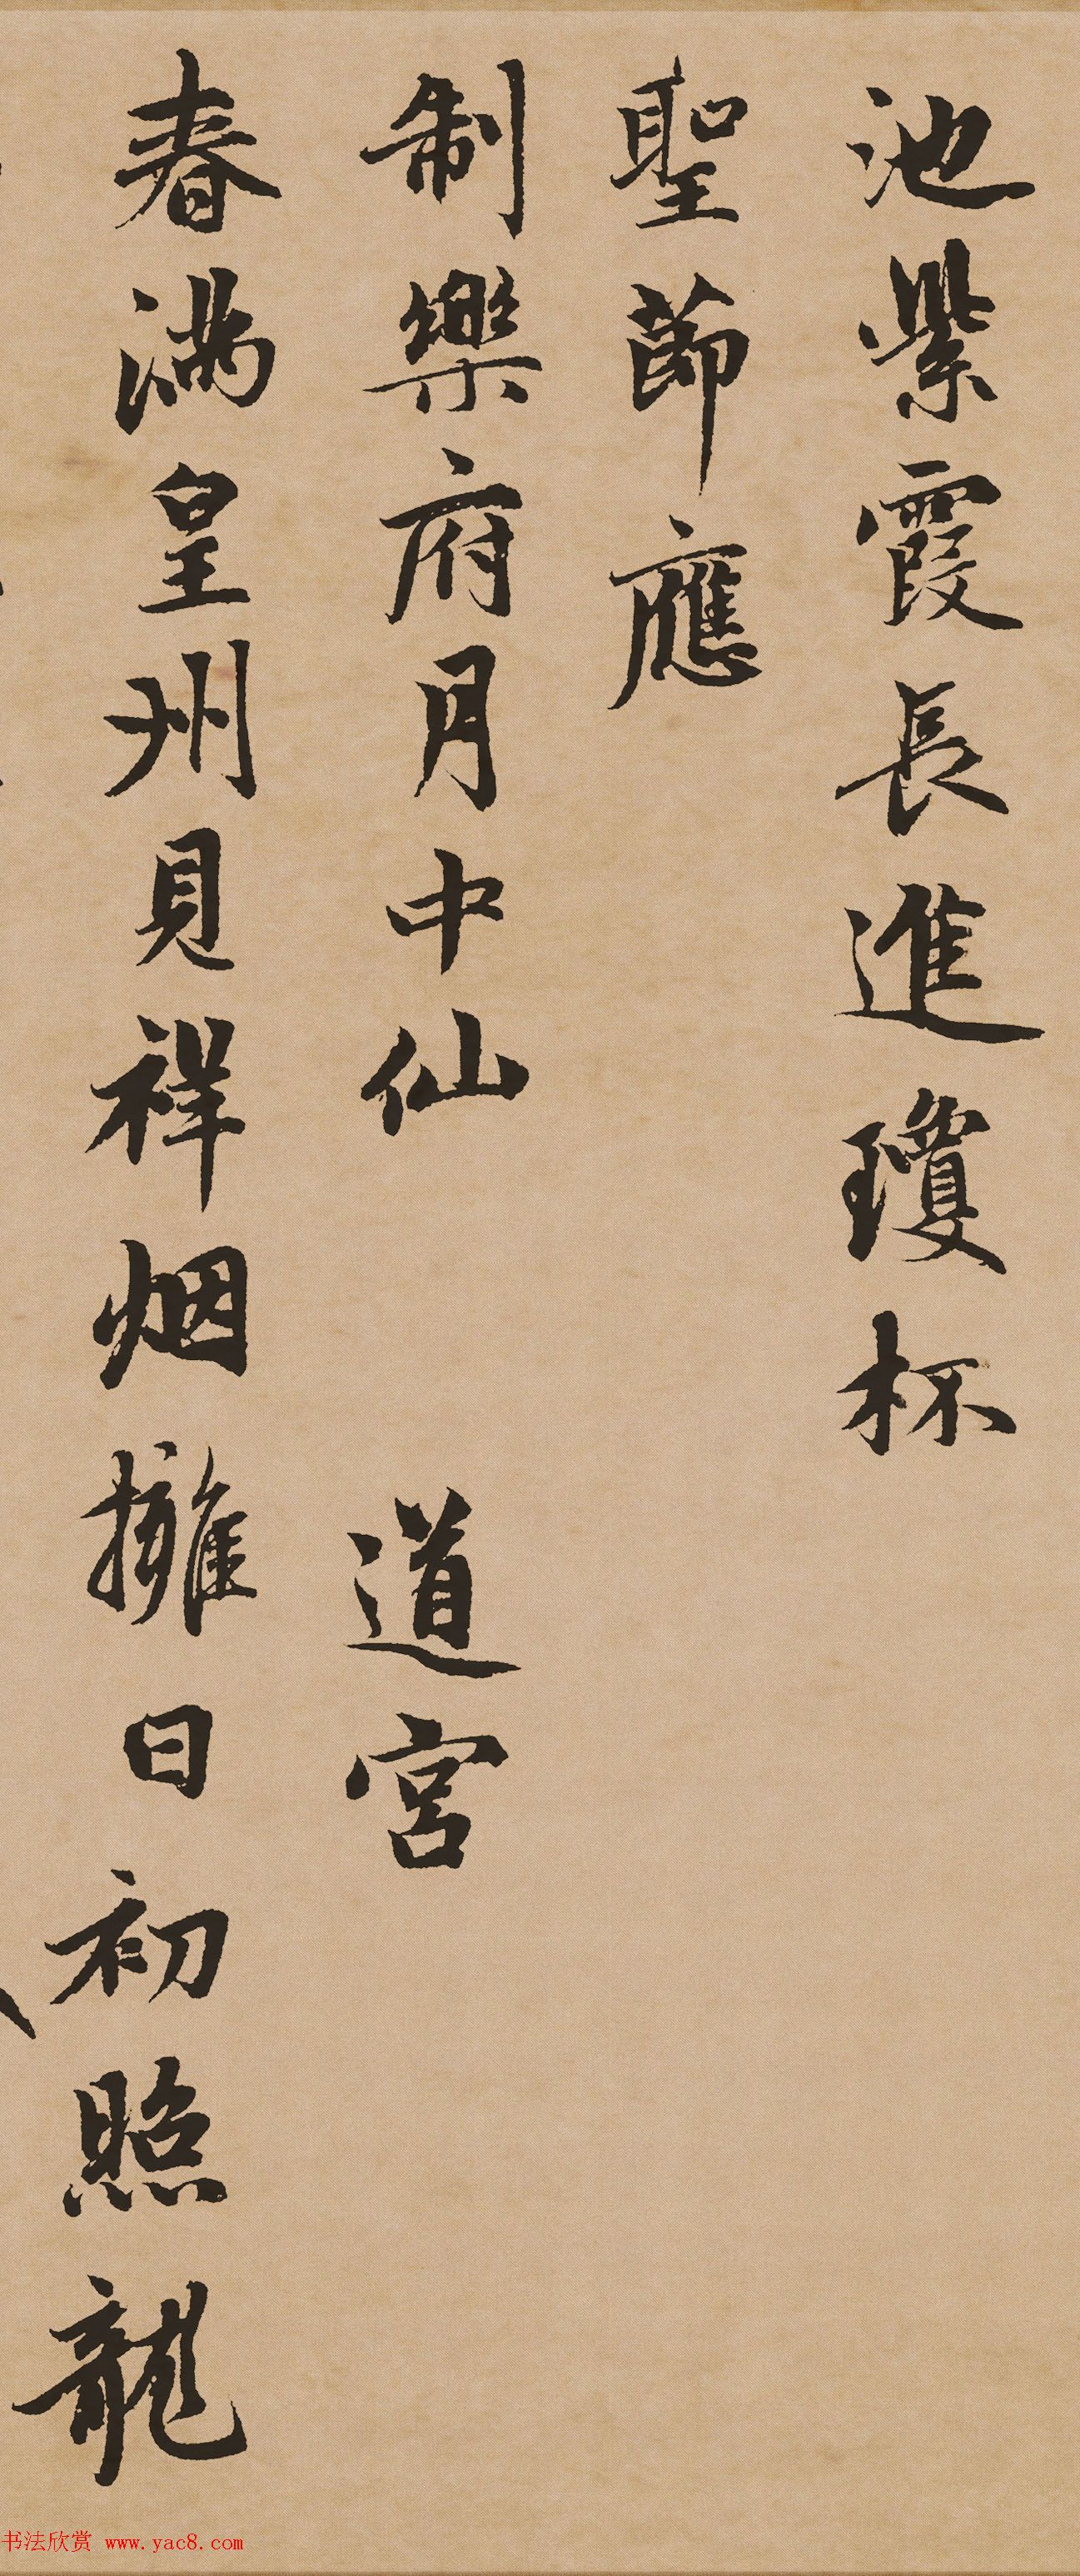 池紫霞長進瓊杯
聖節應
制樂府月中仙 道宮
春滿皇州見祥烟擁日初照龍
书法欣赏 www.yac8.com